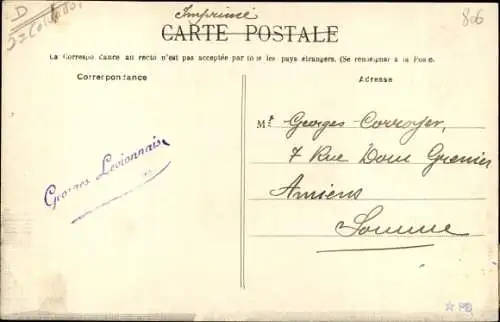 Imprimé
D
806
CARTE POSTALE
La Correspondance au recto n'est pas acceptée par tous les pays étrangers. (Se renseigner à la Poste.
Correspondance
Adresse
Mr Georges Corroyer,
7 Rue Dom Grenier
Amiens
Somme
Georges Levionnais
☆ PB